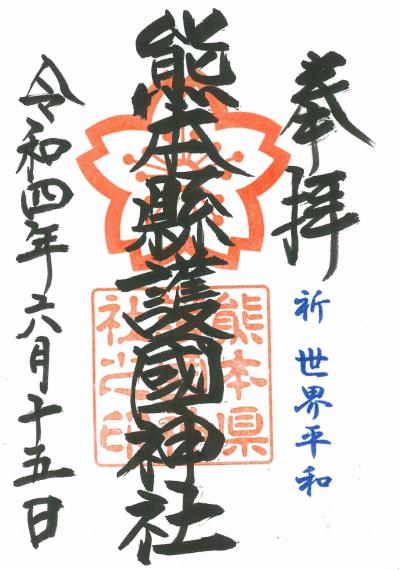 奉拝
祈 世界平和
熊本縣護國神社
熊本県
護國神
社之印
令和四年六月十五日